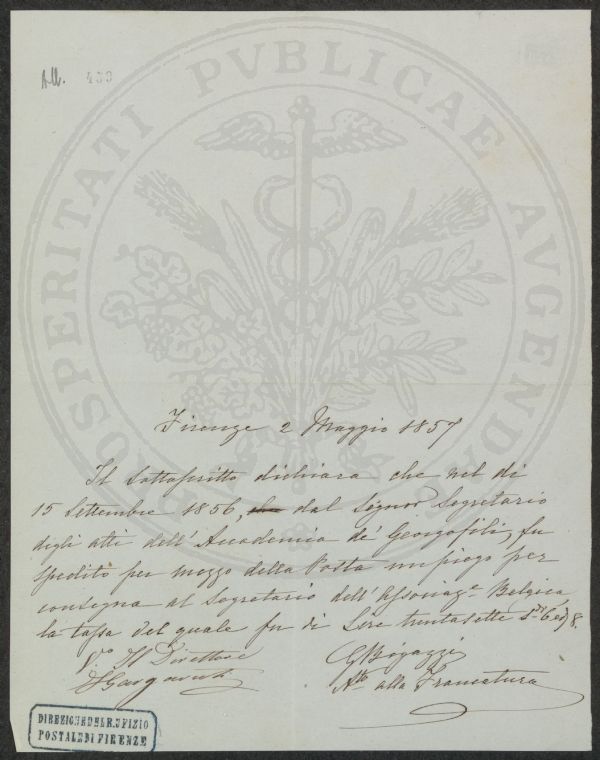 PROSPERITATI PVBLICAE AVGENDAE
All. 430
Firenze 2 Maggio 1857
Il sottoscritto dichiara che nel dì
15 Settembre 1856, dal Signor Segretario
degli atti dell' Accademia de' Georgofili, fu
spedito per mezzo della Posta un piego per
consegna al Segretario dell' Associaz.e Belgica
la tassa del quale fu di Lire trentasette S.di 6 e d 8.
V.o Il Direttore
GBigazzi
Atto alla Francatura
DIREZIONE DEL R. UFIZIO
POSTALE DI FIRENZE